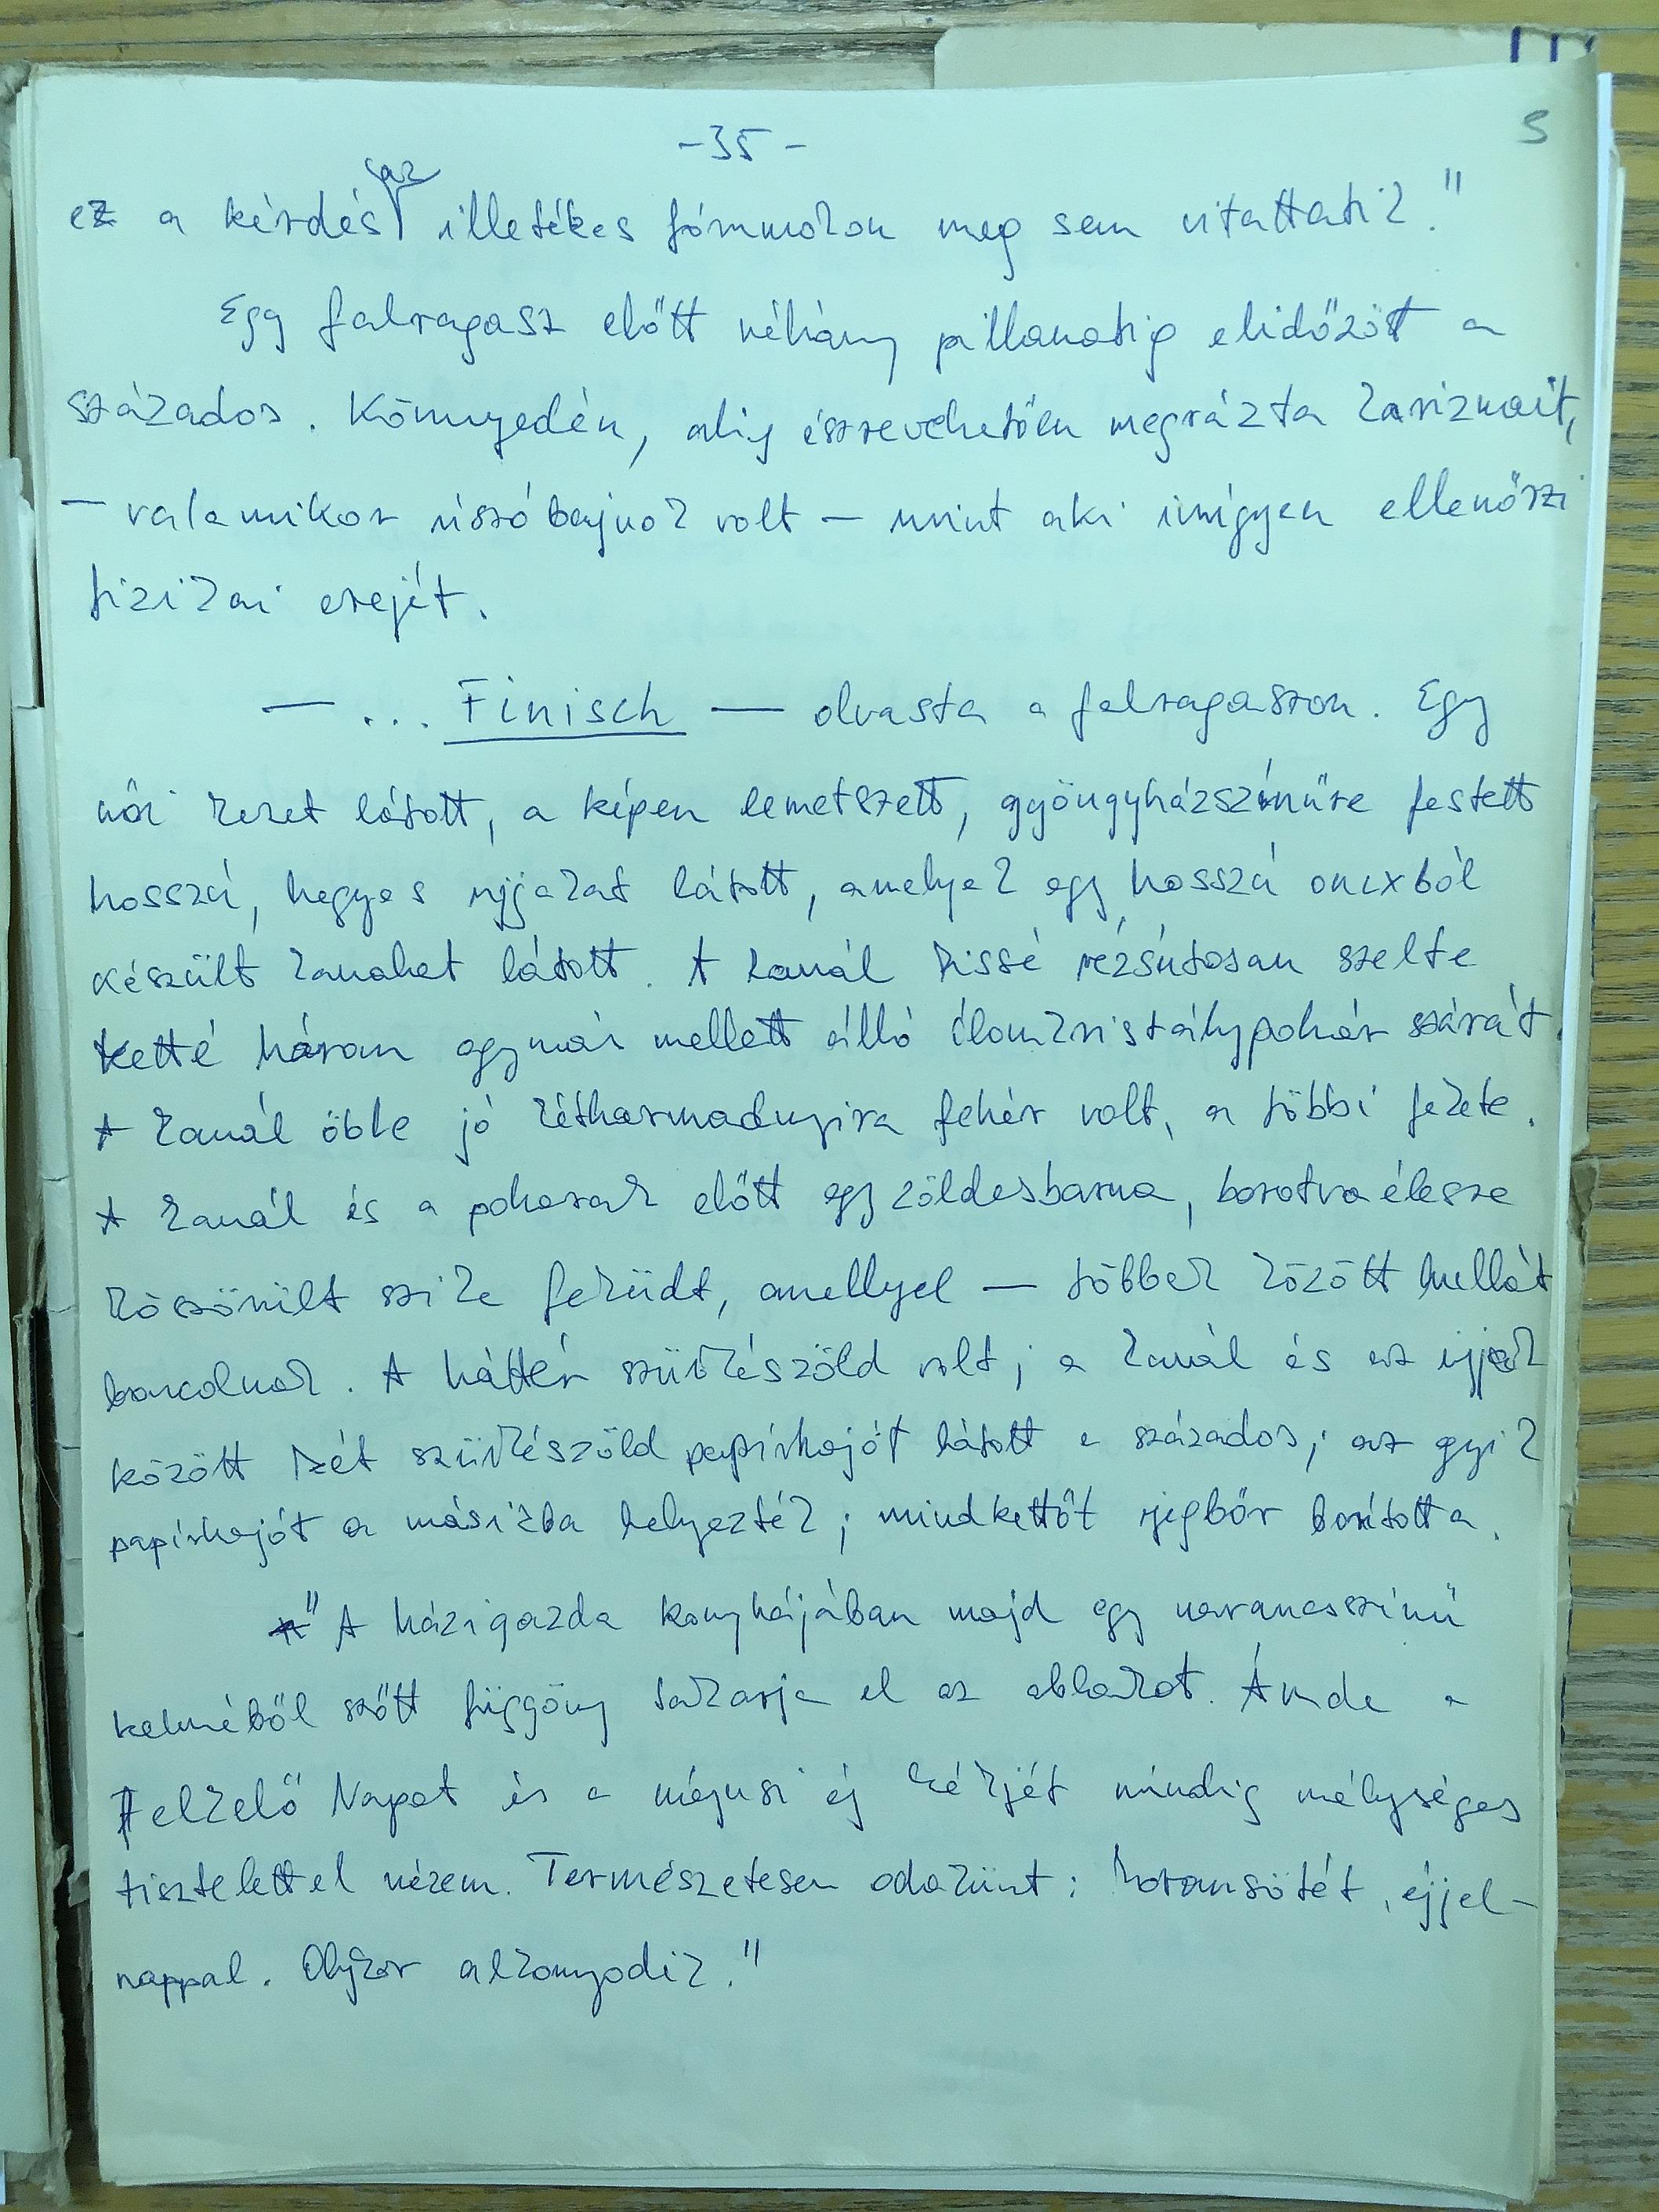 -35-
5
az
ez a kérdés illetékes fórumokon meg sem vitattatik."
Egy falragasz előtt néhány pillanatig elidőzött a
százados. Könnyedén, alig észrevehetően megrázta karizmait,
— valamikor úszóbajnok volt — mint aki imígyen ellenőrzi
fizikai erejét.
— ... Finisch — olvasta a falragaszon. Egy
női kezet látott, a képen lemetszett, gyöngyházszínűre festett
hosszú, hegyes ujjakat látott, amelyek egy hosszú onixból
készült kanalat látott. A kanál kissé rézsútosan szelte
ketté három egymás mellett álló ólomkristálypohár szárát.
A kanál öble jó kétharmadnyira fehér volt, a többi fekete.
A kanál és a poharak előtt egy zöldesbarna, borotvaélesre
köszörült szike feküdt, amellyel — többek között hullát
boncolnak. A háttér szürkészöld volt; a kanál és az ujjak
között két szürkészöld papírhajót látott a százados; az egyik
papírhajót a másikba helyezték; mindkettőt jégbőr borította.
" A házigazda konyhájában majd egy narancsszínű
kelméből szőtt függöny takarja el az ablakot. Ámde a
Felkelő Napot és a májusi éj kékjét mindig mélységes
tisztelettel nézem. Természetesen odakünt: koromsötét, éjjel-
nappal. Olykor alkonyodik."